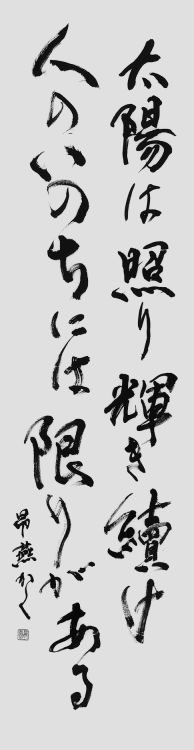 太陽は照り輝き續け
人のいのちには限りがある
昂燕かく